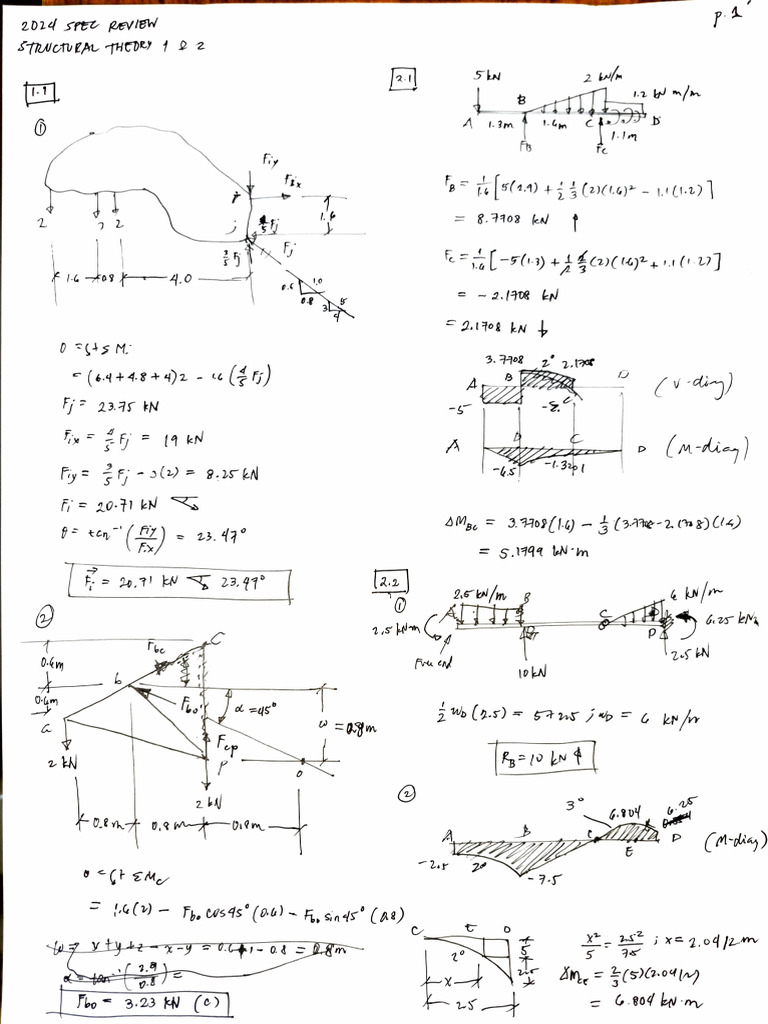 p. 1
2024 SPEC REVIEW
STRUCTURAL THEORY 1 & 2
1.1
①
Fiy
Fix
i
j
1.6
4/5 Fj
3/5 Fj
Fj
2 2 2
1.6 0.8 4.0
0.6 1.0 0.8
3 5 4
0 = ↻+ Σ Mi
= (6.4 + 4.8 + 4)2 - 1.6 (4/5 Fj)
Fj = 23.75 kN
Fix = 4/5 Fj = 19 kN
Fiy = 3/5 Fj - 3(2) = 8.25 kN
Fi = 20.71 kN
θ = tan⁻¹ (Fiy/Fix) = 23.47°
Fi = 20.71 kN 23.47°
②
0.6m
0.6m
Fbc
C
b
Fbo
α = 45°
a
w = 0.8m
Fcp
P
o
2 kN
2 kN
0.8m 0.8m 0.8m
0 = ↻+ ΣMc
= 1.6(2) - Fbo cos45° (0.6) - Fbo sin45° (0.8)
w = x+y+z-x-y = 0.6+1-0.8 = 0.8m
α = tan⁻¹ (2.9/0.8) =
Fbo = 3.23 kN (C)
2.1
5 kN
2 kN/m
1.2 kN m/m
A B C D
1.3m 1.6m 1.1m
FB FC
FB = 1/1.6 [5(2.9) + 1/2 1/3 (2)(1.6)² - 1.1(1.2)]
= 8.7708 kN ↑
Fc = 1/1.6 [-5(1.3) + 1/2 2/3 (2)(1.6)² + 1.1(1.2)]
= -2.1708 kN
= 2.1708 kN ↓
3.7708 2° 2.1708
A B C D
-5
(V-diag)
A B C D
-6.5 -1.3201
(M-diag)
ΔMBC = 3.7708(1.6) - 1/3 (3.7708-2.1708)(1.6)
= 5.1799 kN·m
2.2
①
2.5 kN/m B
2.5 kN·m
Free end
10 kN
C
6 kN/m
D
6.25 kN·m
2.5 kN
1/2 wD (2.5) = 5+2.5 ; wD = 6 kN/m
RB = 10 kN ↑
②
3° 6.804 6.25
A B C E D
-2.5 2° -7.5
(M-diag)
C E D
2°
5
2.5
x
2.5
x²/5 = 2.5²/7.5 ; x = 2.0412 m
ΔMCE = 2/3 (5)(2.0412)
= 6.804 kN·m